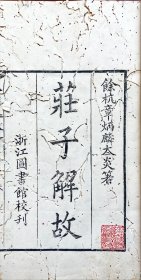 餘杭章炳麟太炎箸
莊子解故
浙江圖書館校刊